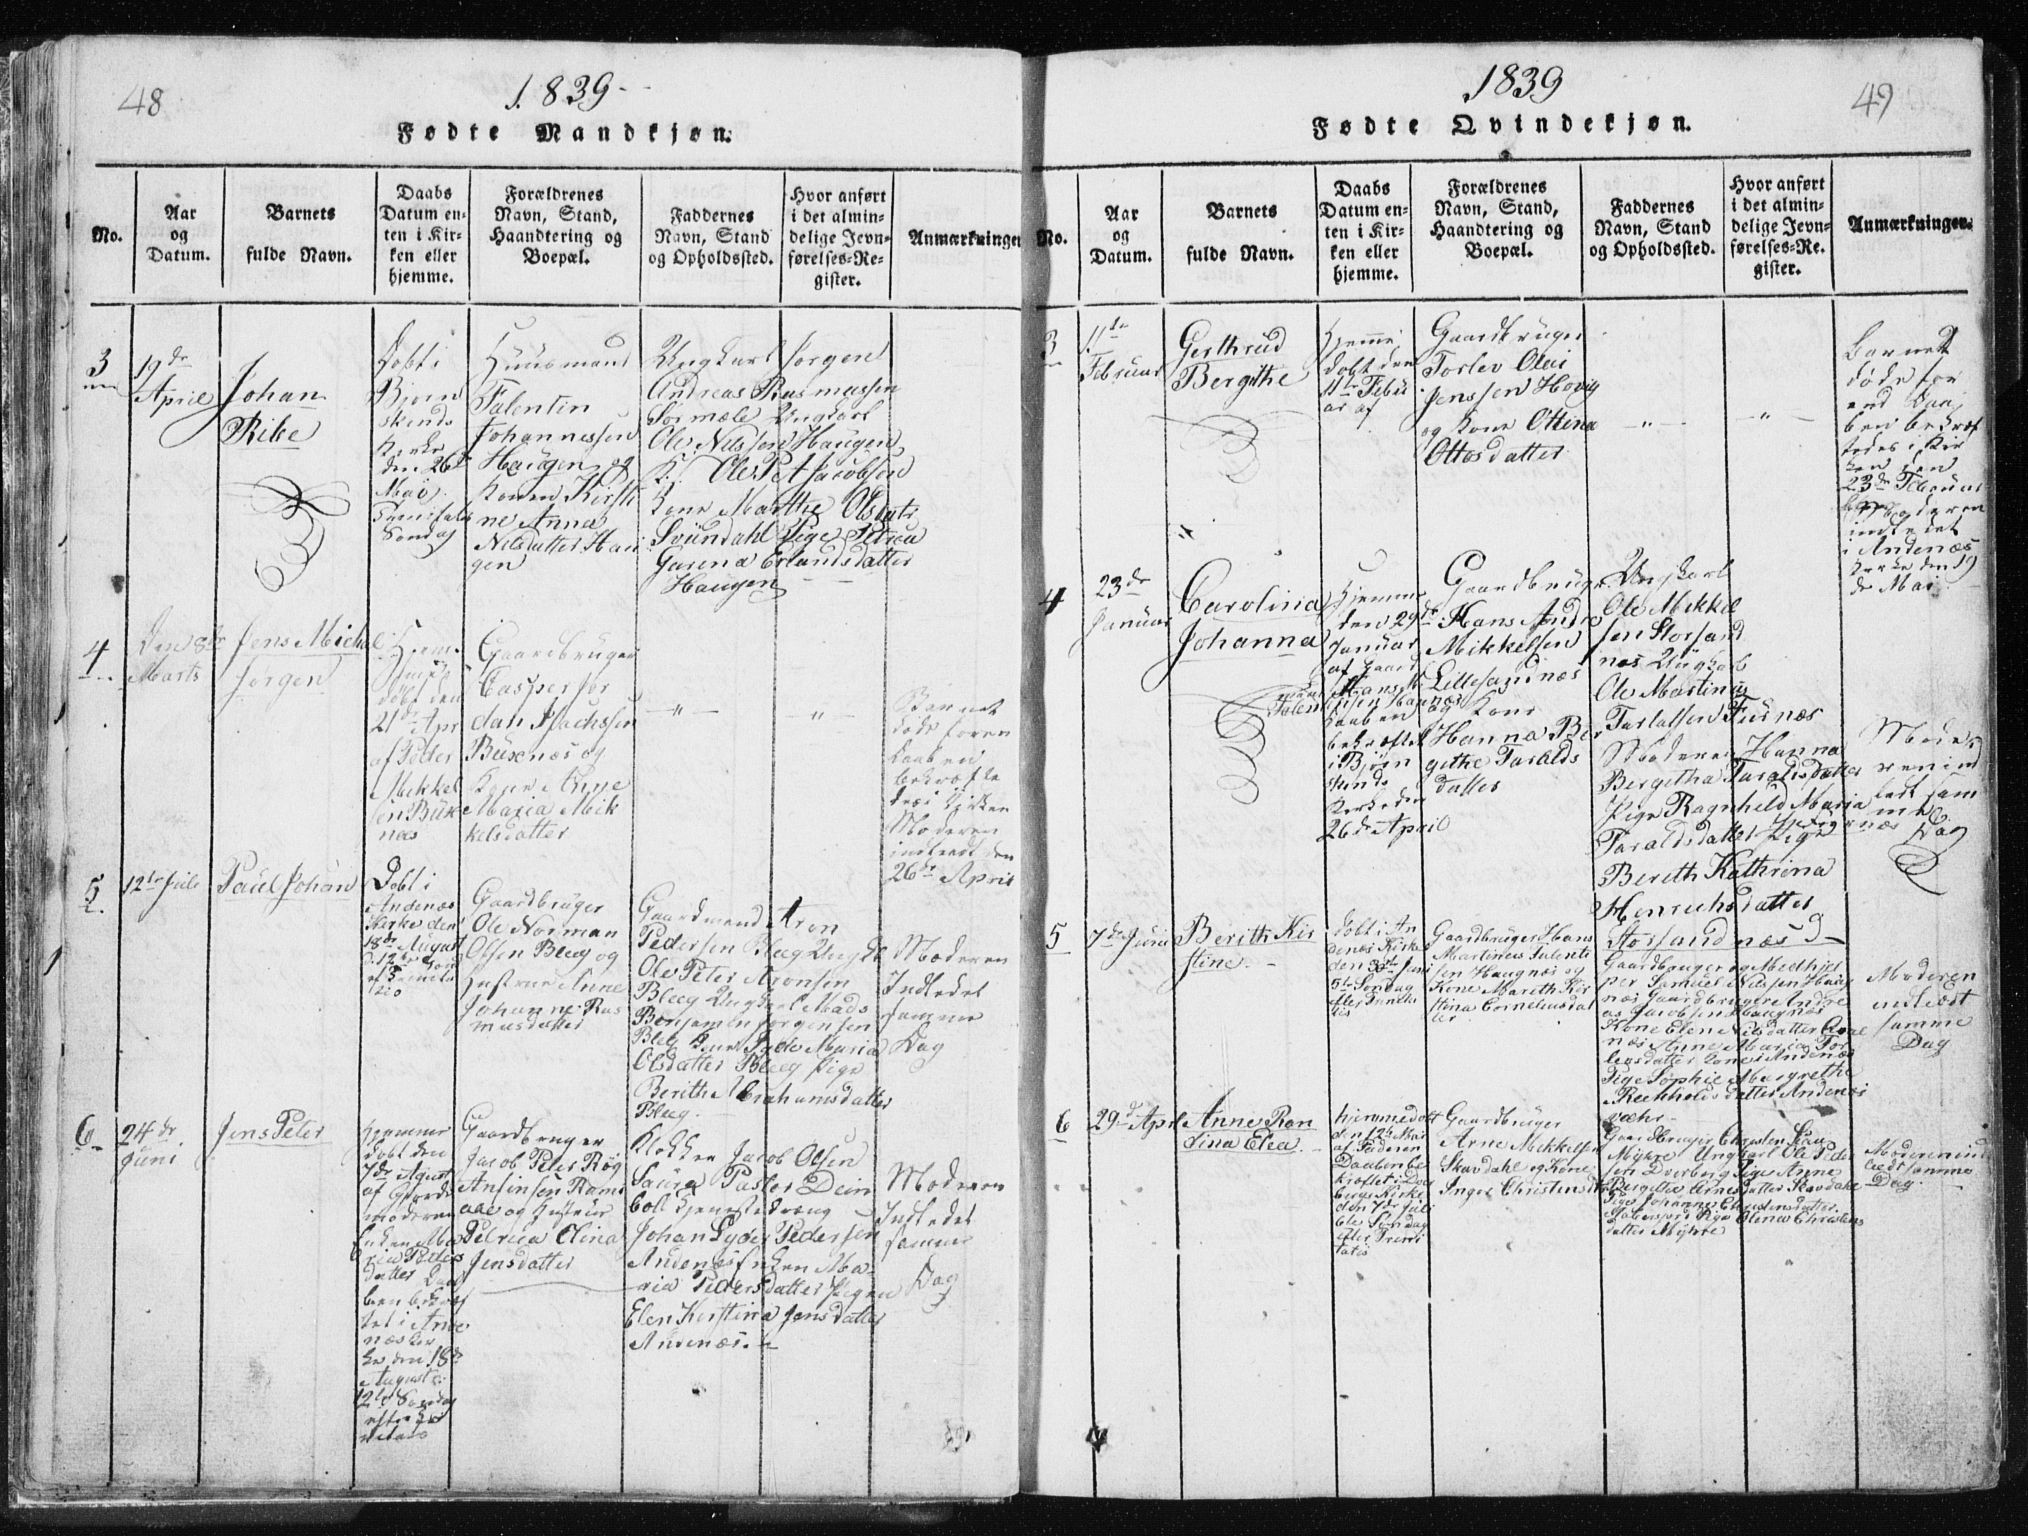 48
1839
Fødte Mandkjøn.
No.
Aar
og
Datum.
Barnets
fulde Navn.
Daabs
Datum en-
ten i Kir-
ken eller
hjemme.
Forældrenes
Navn, Stand,
Haandtering og
Boepæl.
Faddernes
Navn, Stand
og Opholdssted.
Hvor anført
i det almin-
delige Jevn-
førelses-Re-
gister.
Anmærkninger
3
19de
April
Johan
Ribe
Dobt i
Bjørn
skinds
Kirke
den 26de
Mai
Søndag
Huusmand
Falentin
Johannessen
Haugen og
Konen Kirsti
ne Anna
Nilsdatter Hau
gen
Ungkarl Jørgen
Andreas Rasmussen
Ungkarl
Ole Nilssen Haugen
K. Ole Pet Jacobsen
Kone Marthe Olsdatr
Svündahl Pige Petrea
Gurena Erlandsdatter
Haugen
4
Den 8de
Marts
Jens Michal
Jørgen
Hjem
døbt den
21de Apr
af Peder
Mikkel
sen Bux
næs
Gaardbruger
Casper Jør
dan
Buxnæs og
Kone Anne
Maria Mik
kelsdatter
Barnet
døde foren
Daaben
bekræfte
des i Kirken
Moderen
indledt den
26de April
5
12te Juli
Paul Johan
Dobt i
Andenæs
Kirke den
18de August
Gaardbruger
Ole Norman
Olsen Bleeg og
Hustrue Anne
Johanne Ras
musdatter
Gaardmand Aron
Pedersen Bleeg Ungkl
Ole Peter Aronsen
Bleeg Ungkarl Mads
Benjamin Jørgensen
Bleeg Kone Maria
Olsdatter Bleeg Pige
Berithe Abrahamsdatter
Bleeg
Moderen
Indledet
samme
Dag
6
24de
Juni
Jens Peter
Hjemme
døbt den
7de August
af Gjord
moderen
Enken Ma
ria Peders
datter Daa
ben bekræf
tet i Ande
næs Kir
ke den 18de
August
12te Søndag
efter Tri
nitatis
Gaardbruger
Jacob Peter Røg
Ansinsen Rams
aae og Hustrue
Petrica Elina
Jensdatter
Klokker Jacob Olsen
Saura Pastor Dein
boll Tjenestedreng
Johan Lyder Pedersen
Andenes Enken Ma-
ria Pedersdatter Pigen
Elen Kirstina Jensdatter
Andenæs.
Moderen
Indledet
samme
Dag
49
1839
Fødte Qvindekjøn.
No.
Aar
og
Datum.
Barnets
fulde Navn.
Daabs
Datum en-
ten i Kir-
ken eller
hjemme.
Forældrenes
Navn, Stand,
Haandtering og
Boepæl.
Faddernes
Navn, Stand
og Opholdssted.
Hvor anført
i det almin-
delige Jevn-
førelses-Re-
gister.
Anmærkninger.
3
11te
Februar
Gerthrud
Bergithe
Hjemme
døbt den
11te Febru
ar af
Gaardbruger
Torlev Olai
Jenssen Hovig
og Kone Ottina
Ottosdatter
Barnet
døde før
end Daa
ben bekræf
tedes i Kir
ken den
23de Februar
Moderen
indledet
i Andenæs
Kirke den 19
de Mai
4
23de
Januar
Carolina
Johanna
Hjemme
den 29de
Januar
af Gaard
Daaben
bekræftet
i Bjørn
skinds
Kirke den
26de April
Gaardbruger
Hans Andre
Mikkelsen
Lillesandnæs
og Kone
Hanna Ber
gethe Faralds
datter
Ungkarl
Ole Mikkel
sen Storsand
næs Ungkarl
Ole Martinus
Furnæs
Moderen Hanna
Bergetha Taralsdatter
Pige Ragnhild Maria
Taraldsdatter Pige
Bereth Kathrina
Henrichsdatter
Storsandnæs
Mode
ren ind
ledt sam
me
Dag
5
7de Juni
Berith Kir
stine
Døbt i An
denæs Kirke
den 30te Juni
5te Søndag
efter Trinita
tis
Gaardbruger Hans
Martineus Falenti
sen Haugnæs og
Kone Mareth Kir
stina Corneliusdat
ter
Gaardbruger og Medhjel
per Samuel Nilsen Haug
næs Gaardbruger Andre
as Jacobsen Haugnæs
Kone Elen Nilsdatter Aase
næs Anne Maria Tor
lensdatter Kone i Andenæs
Pige Sophie Margrethe
Reeholdsdatter Andenæs
væhr
Moderen
indledt
samme
Dag
6
29de April
Anne Ran
dina Elea
hjemmedøbt
den 12te Mai
af Faderen
Daaben be
kræftet i Dver
bergs Kirke
den 7de Juli
6te Søndag
efter Trini
tatis
Gaardbruger
Arne Mikkelsen
Skavdahl og Kone
Inger Christensdr
Gaardbruger Christen
Myhre Ungkarl Ole Peder
sen Dverberg Pige Anne
Bergitte Arnesdatter Skavdahl
Pige Johanna Christensdatter
Pige Olena Christens
datter Myhre
Moderen ind
ledt samme
Dag.